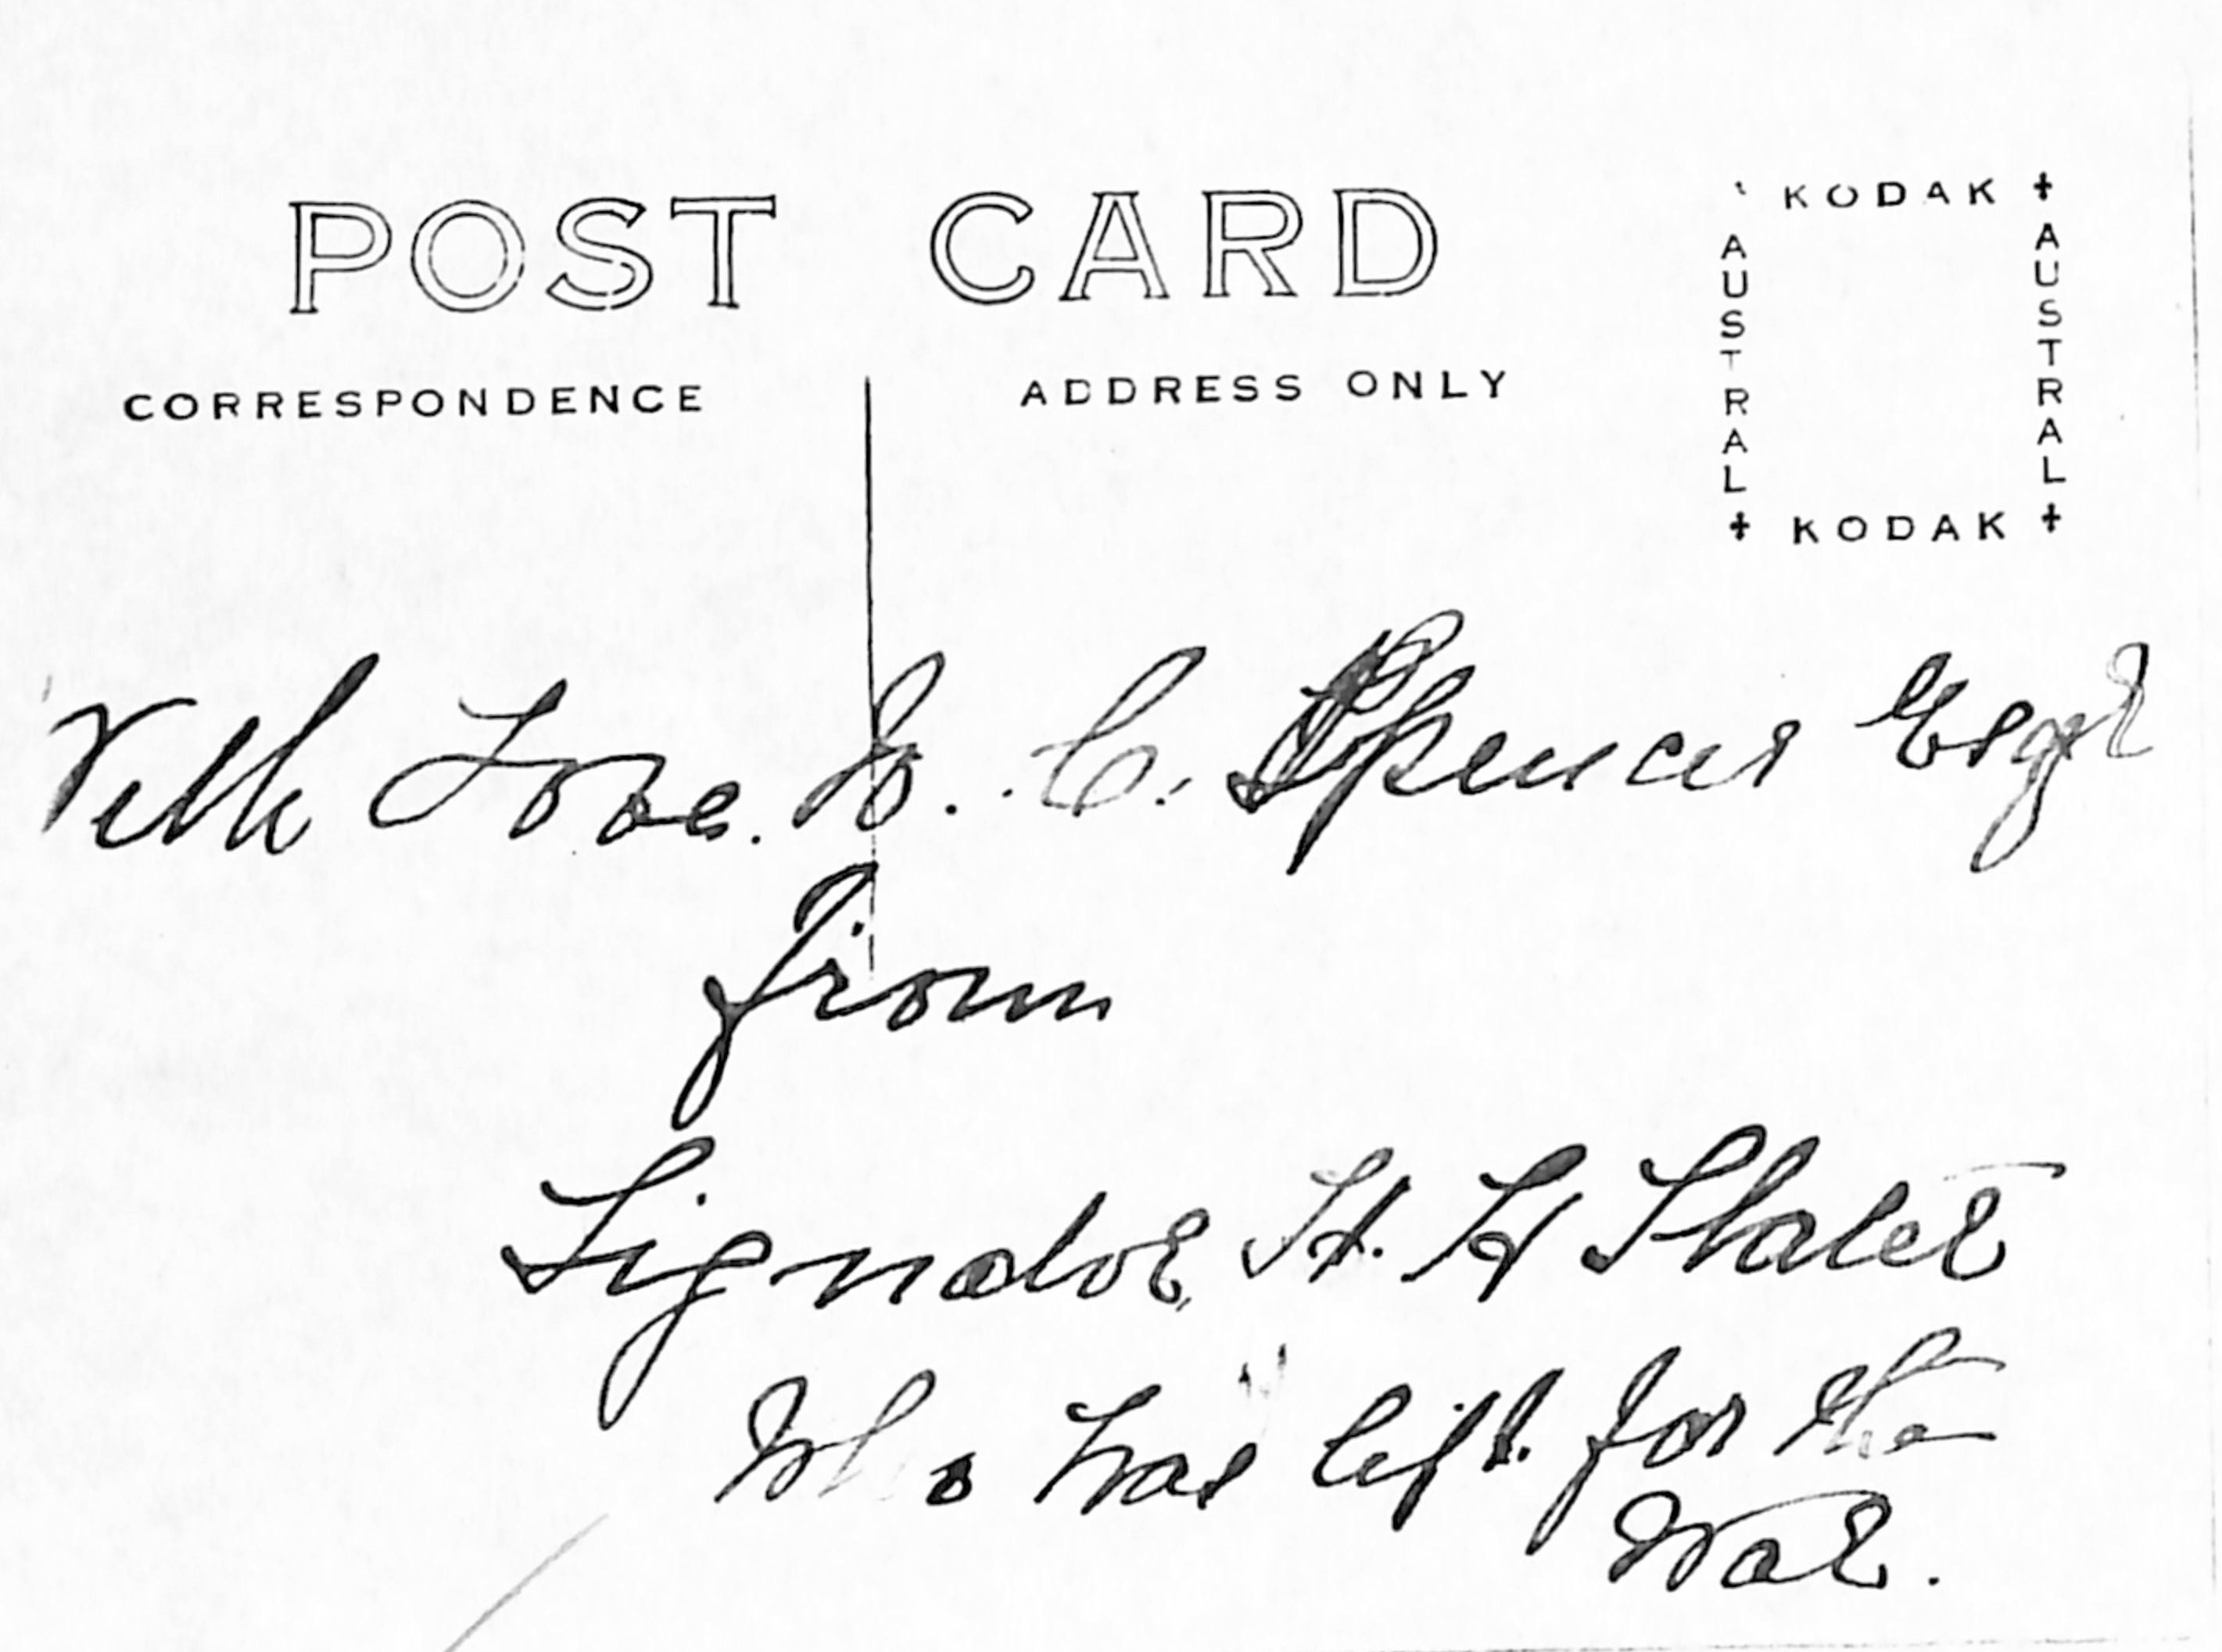 POST CARD
KODAK
AUSTRAL
AUSTRAL
KODAK
CORRESPONDENCE
ADDRESS ONLY
With Love. C. Spencer Esqr
from
Signalor H. H Slater
Who has left for the
War.